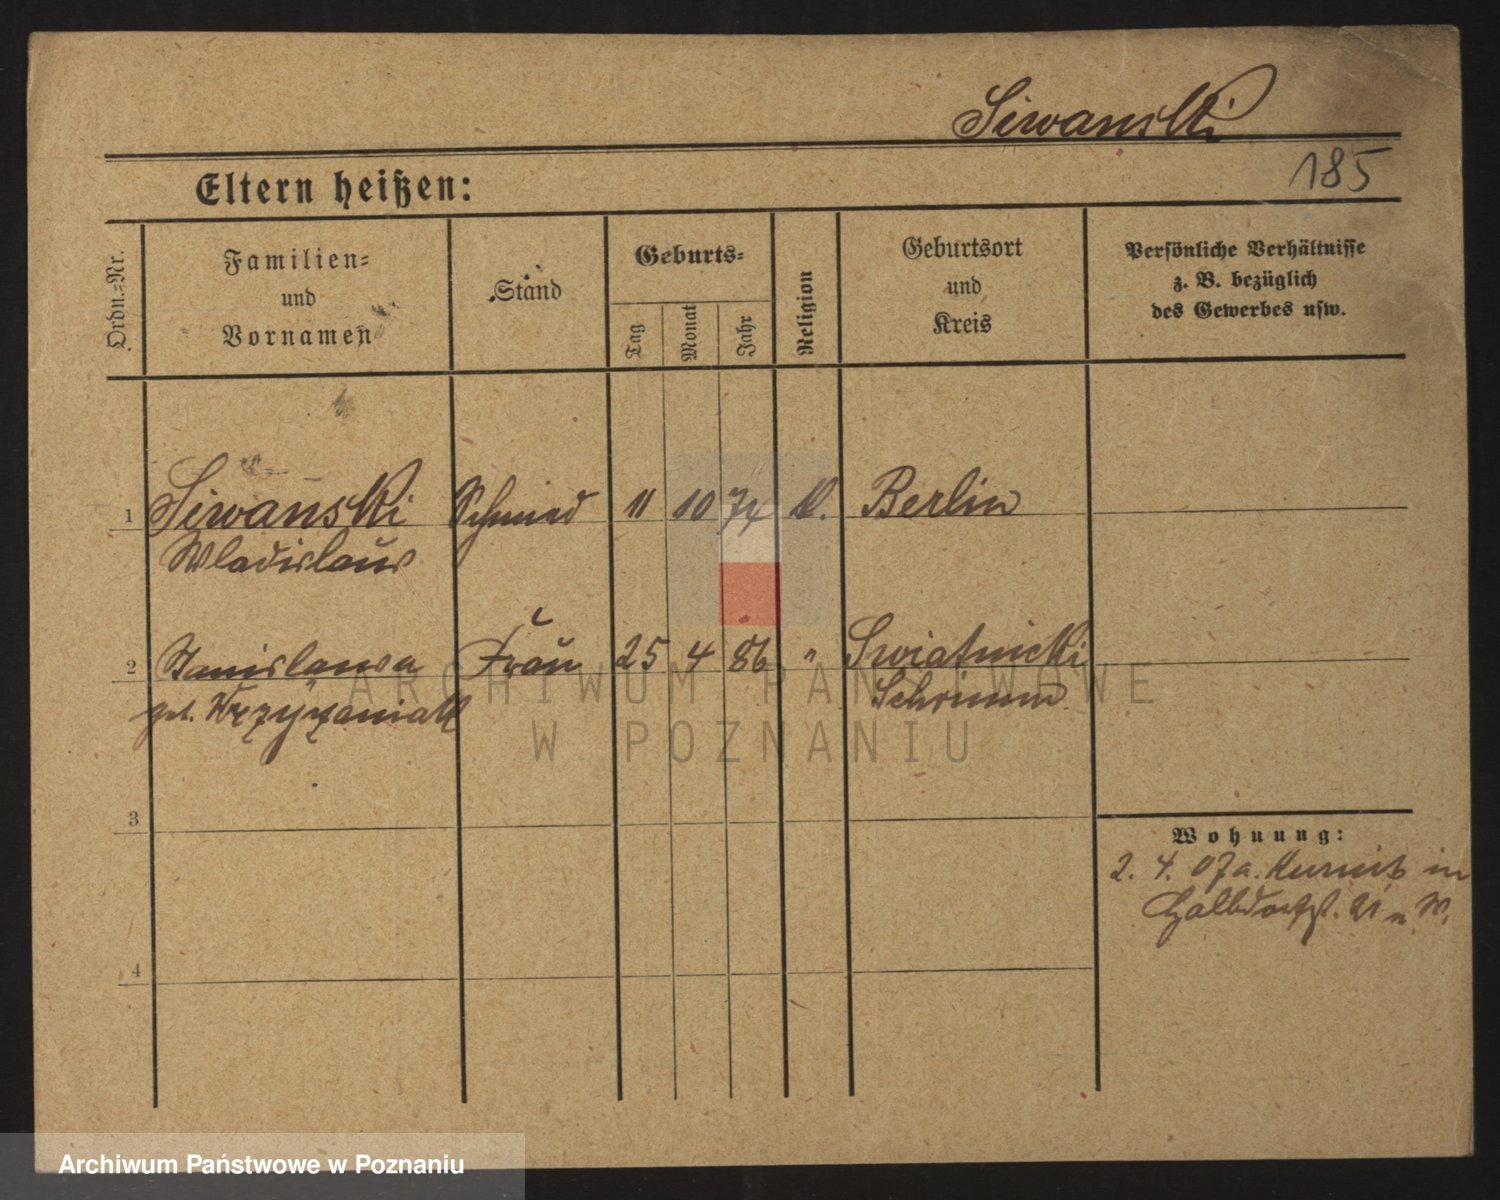 Siwanski
185
Eltern heißen:
Ordn.-Nr.
Familien-
und
Vornamen
Stand
Geburts-
Tag
Monat
Jahr
Religion
Geburtsort
und
Kreis
Persönliche Verhältnisse
z. B. bezüglich
des Gewerbes usw.
1 Siwanski Schmied 11 10 74 k. Berlin
Wladislaus
2 Stanislawa Frau 25 4 86 " Swiatnicki
geb. Krzyżaniak Schrimm
3
Wohnung:
2. 4. 07 a. Kurnik in
Halbdorfst. 21 n. W.
4
ARCHIWUM PAŃSTWOWE
W POZNANIU
Archiwum Państwowe w Poznaniu